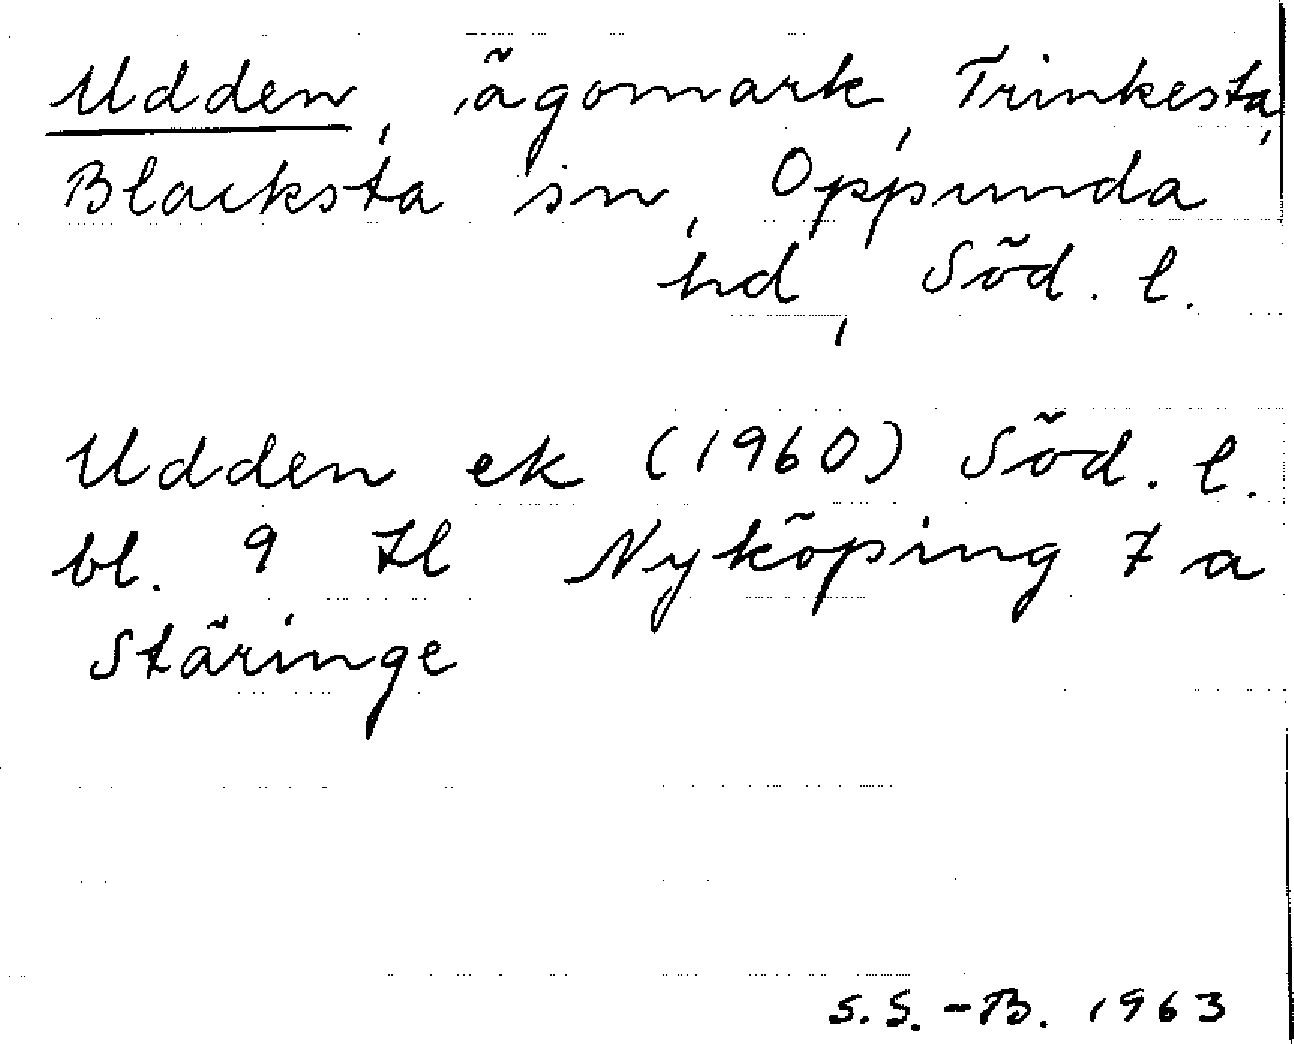 Udden, ägomark, Trinkesta,
Blacksta sn, Oppunda
hd, Söd. l.
Udden ek (1960) Söd. l.
bl. 9 Il Nyköping 7 a
Stäringe
S.S.-B. 1963